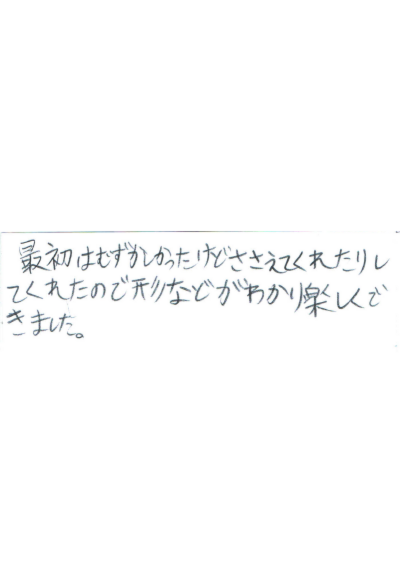 最初はむずかしかったけどささえてくれたりし
てくれたので形などがわかり楽しくで
きました。